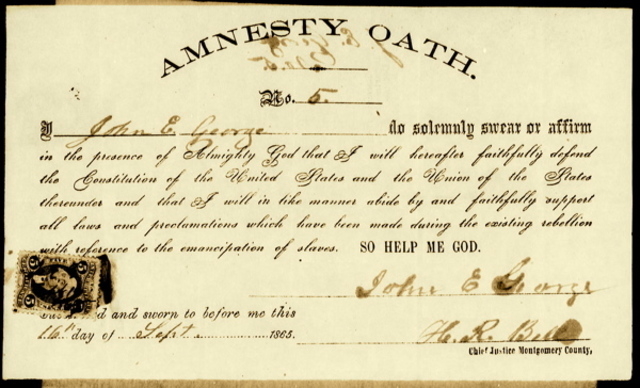 AMNESTY OATH.
No. 5.
I John E. George do solemnly swear or affirm
in the presence of Almighty God that I will hereafter faithfully defend
the Constitution of the United States and the Union of the States
thereunder and that I will in like manner abide by and faithfully support
all laws and proclamations which have been made during the existing rebellion
with reference to the emancipation of slaves. SO HELP ME GOD.
John E George
and sworn to before me this
16th day of Sept 1865.
H. R.
Chief Justice Montgomery County,